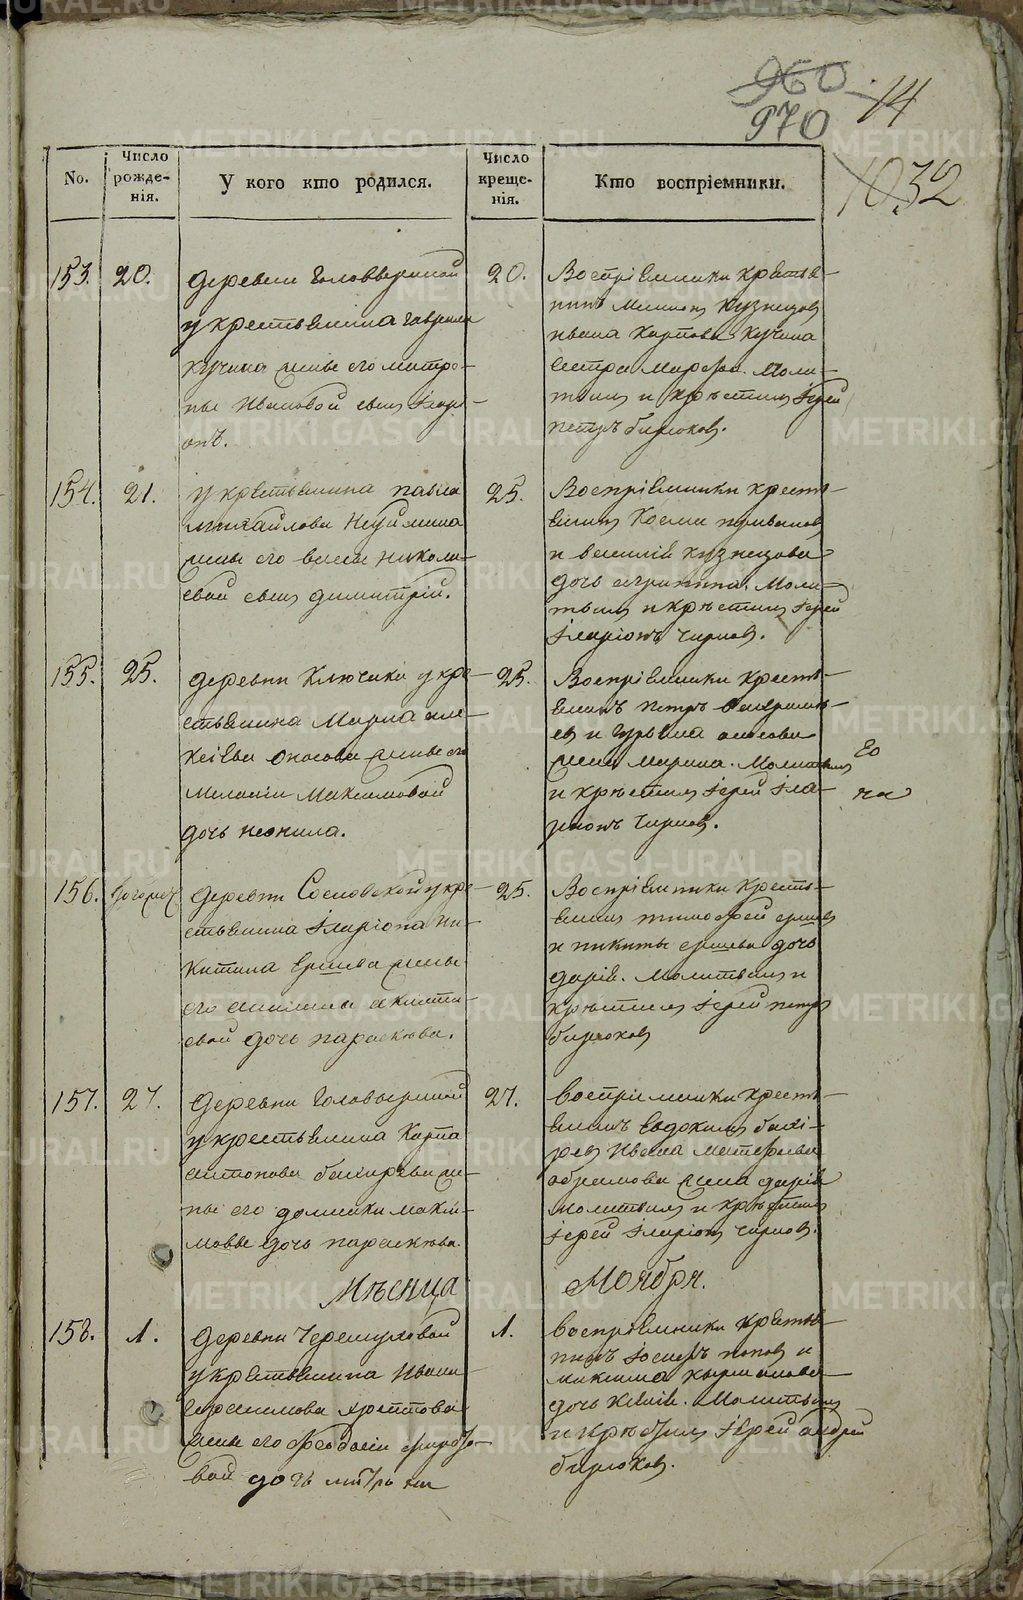 960
14
970
1032
No.
Число рожде-нія.
У кого кто родился.
Число креще-нія.
Кто воспріемники.
153. 20.
деревни Головыриной
у крестьянина Гаврила
Кучина жены его Матро-
ны Ивановой сын Іларі-
онъ.
20.
Воспріемники крестья-
нинъ Кузнецов
Ивана Карпова Кучина
сестра Марфа. Моли-
твил и крѣстил Іерей
Петръ Бирюков.
154. 21.
у крестьянина Павла
Михайлова
жены его Николa-
евой сын Димитрій.
25.
Воспріемники кресть-
янин Косма
и Василія Кузнецова
дочь Агрипина. Моли-
твил и крѣстил Іерей
Іларіонъ Чирков.
155. 25.
деревни Ключики у кре-
стьянина Марка Але-
ксіева жены его
Меланіи Максимовой
дочь Неонила.
25.
Воспріемники кресть-
янинъ Петръ
ев и
жена Марина. Молитвил
и крѣстил Іерей Іла-
ріонъ Чирков.
156.
деревни Сосновской у кре-
стьянина Іларіона Ни-
китина Ершева жены
его
евой дочь Параскева.
25.
Воспріемники кресть-
янин Тимофей Ершев
и Никиты Ершева дочь
Дарія. Молитвил и
крѣстил Іерей Петр
Бирюков
157. 27.
деревни Головыриной
у крестьянина Карпа
Антонова же-
ны его Домники Макси-
мовы дочь Параскева.
27.
Воспріемники кресть-
янинъ Евдоким
рев Ивана Матфеева
Абрамова жена Дарія
молитвил и крѣстил
Іерей Іларіон Чирков.
Мѣсяца Ноября.
158. 1.
деревни Черемуховой
у крестьянина Ивана
Герасимова
жены его Феодосіи
вой дочь
1.
Воспріемники крестья-
нинъ Іосифъ Попов и
Максима
дочь Ксенія. Молитвил
и крѣстил Іерей Андрей
Бирюков.
METRIKI.GASO-URAL.RU